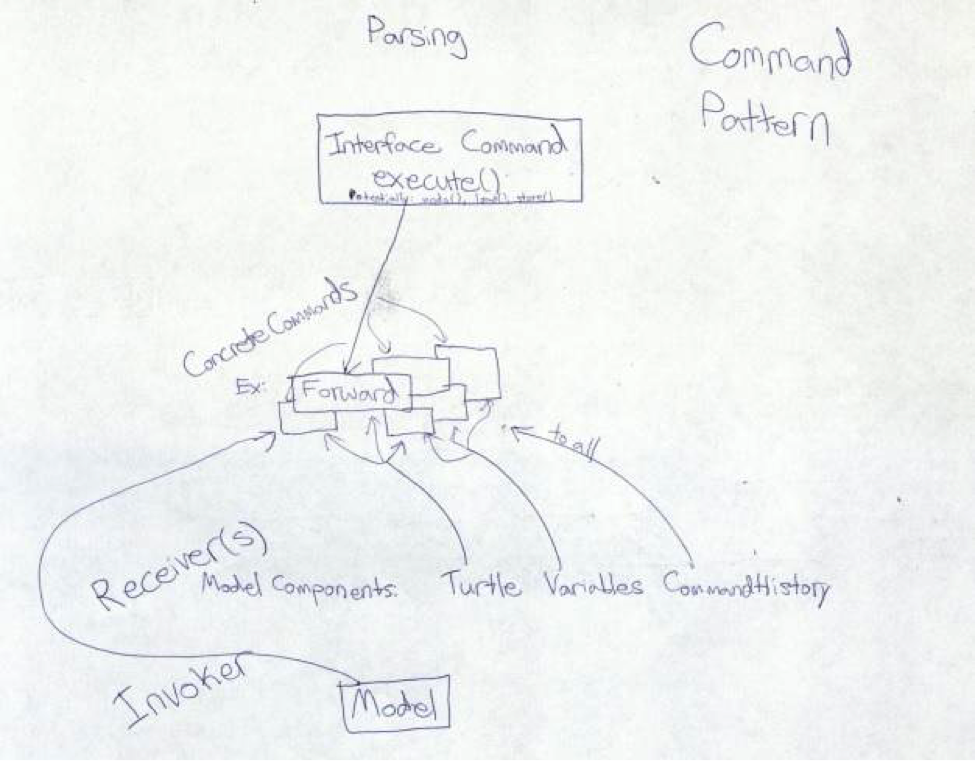 Parsing
Command
Pattern
Interface Command
execute()
Potentially: undo(), store()
Concrete Commands
Ex: Forward
to all
Receiver(s)
Model Components: Turtle Variables CommandHistory
Invoker
Model